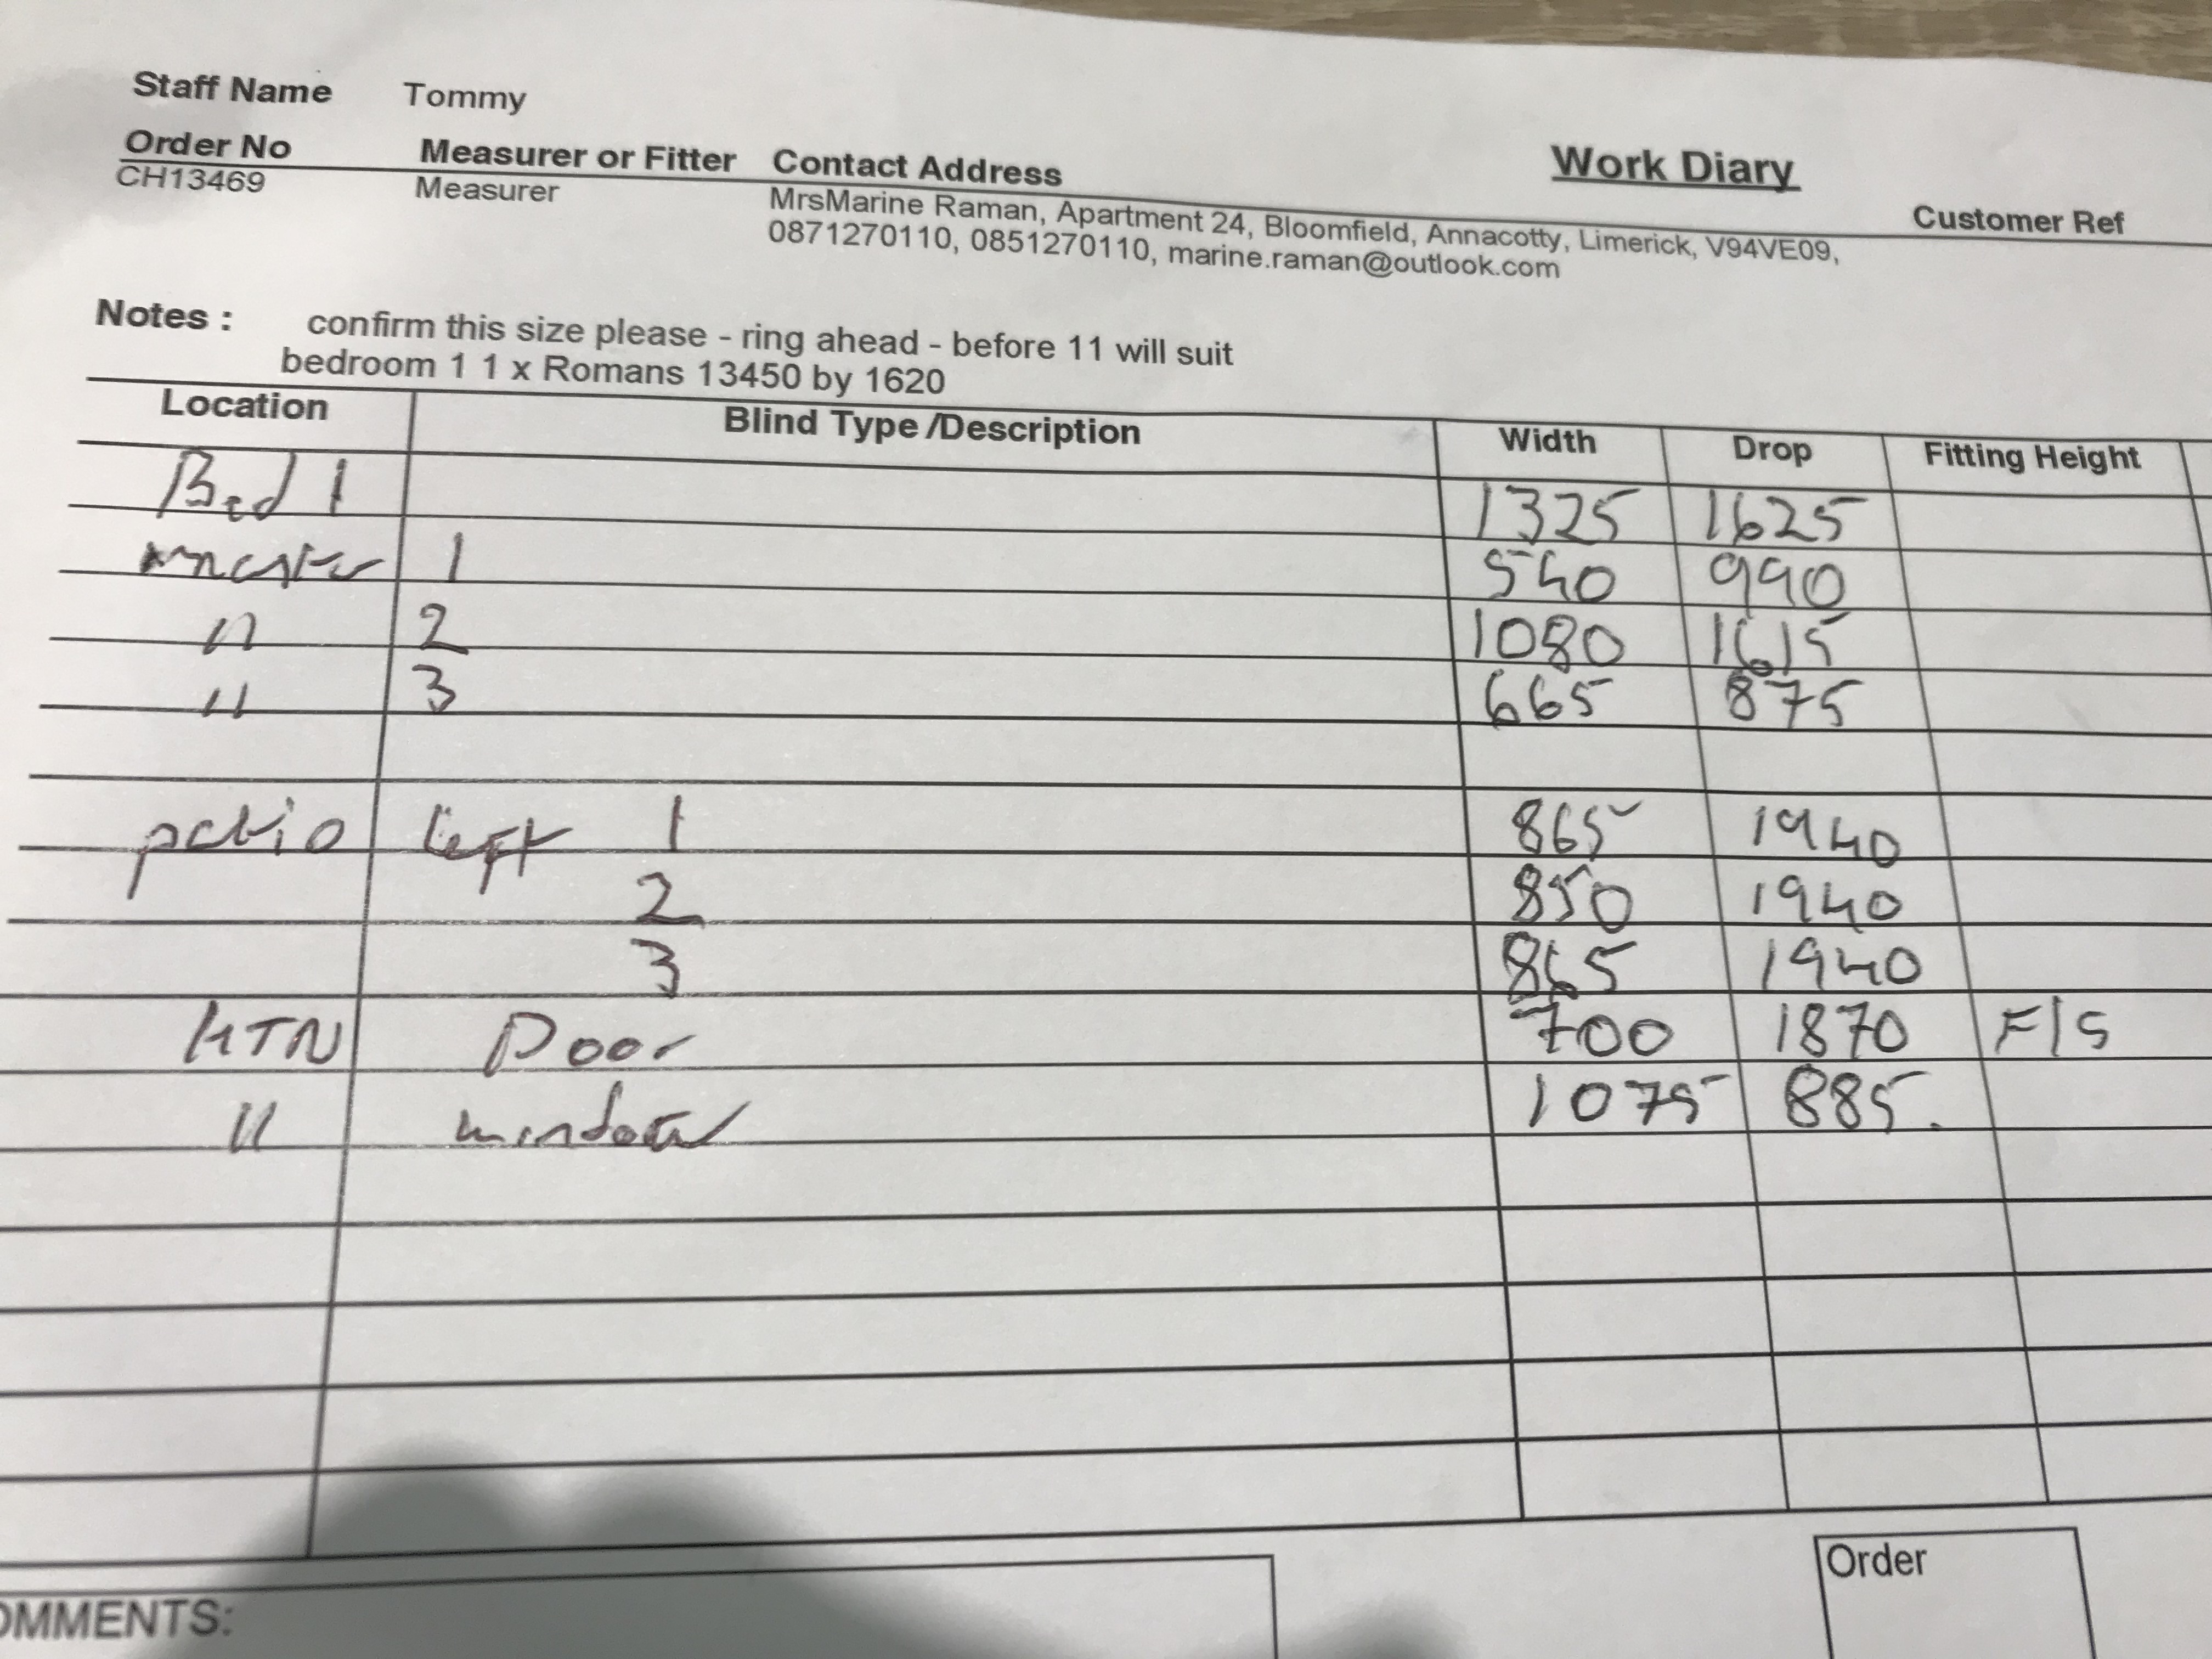 Staff Name Tommy
Work Diary
Order No Measurer or Fitter Contact Address Customer Ref
CH13469 Measurer MrsMarine Raman, Apartment 24, Bloomfield, Annacotty, Limerick, V94VE09,
0871270110, 0851270110, marine.raman@outlook.com
Notes : confirm this size please - ring ahead - before 11 will suit
bedroom 1 1 x Romans 13450 by 1620
Location Blind Type /Description Width Drop Fitting Height
Bed 1 1325 1625
master 1 540 990
" 2 1080 1615
" 3 665 875
patio left 1 865 1940
2 850 1940
3 865 1940
KTN Door 700 1870 F/S
" window 1075 885.
Order
OMMENTS: